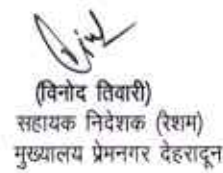 (विनोद तिवारी)
सहायक निदेशक (रेशम)
मुख्यालय प्रेमनगर देहरादून